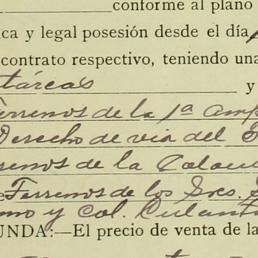 conforme al plano
ca y legal posesión desde el día
contrato respectivo, teniendo una
táreas y
Terrenos de la 1ª amp
Derecho de via del F
renos de la Colon
Terrenos de los Sres.
mo y Col. Culant
UNDA:—El precio de venta de la